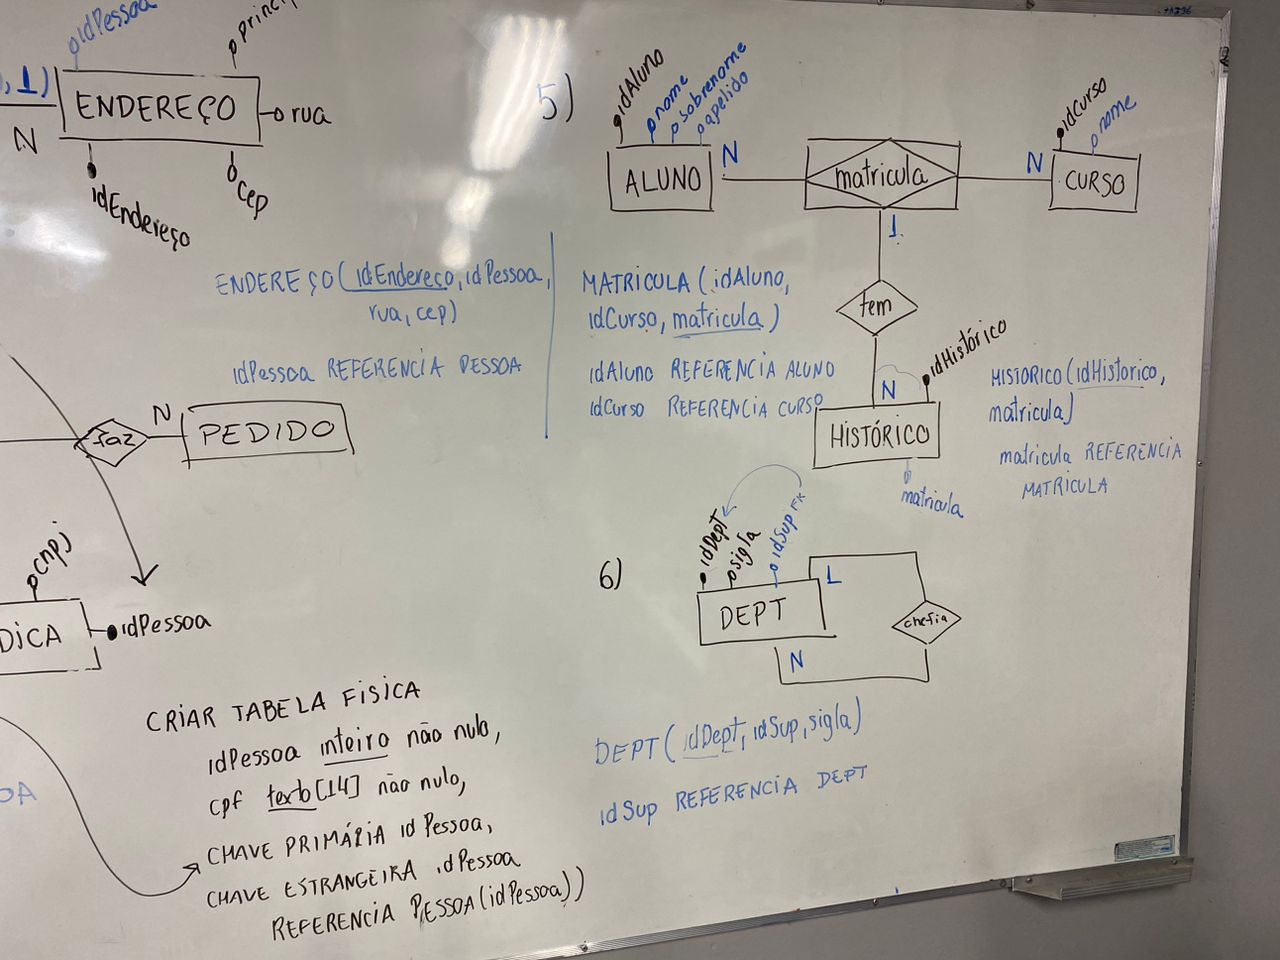 idPessoa
princip
, 1)
N
ENDEREÇO
rua
idEndereço
cep
ENDEREÇO (idEndereço, idPessoa,
rua, cep)
idPessoa REFERENCIA PESSOA
faz
N
PEDIDO
cnpj
DICA
idPessoa
OA
CRIAR TABELA FISICA
idPessoa inteiro não nulo,
cpf texto[14] não nulo,
CHAVE PRIMÁRIA idPessoa,
CHAVE ESTRANGEIRA idPessoa
REFERENCIA PESSOA(idPessoa))
5)
idAluno
nome
sobrenome
apelido
ALUNO
N
matricula
N
idCurso
nome
CURSO
1
tem
N
idHistórico
HISTÓRICO
matricula
MATRICULA (idAluno,
idCurso, matricula)
idAluno REFERENCIA ALUNO
idCurso REFERENCIA CURSO
HISTORICO (idHistorico,
matricula)
matricula REFERENCIA
MATRICULA
6)
idDept
sigla
idSup FK
DEPT
1
N
chefia
DEPT (idDept, idSup, sigla)
idSup REFERENCIA DEPT